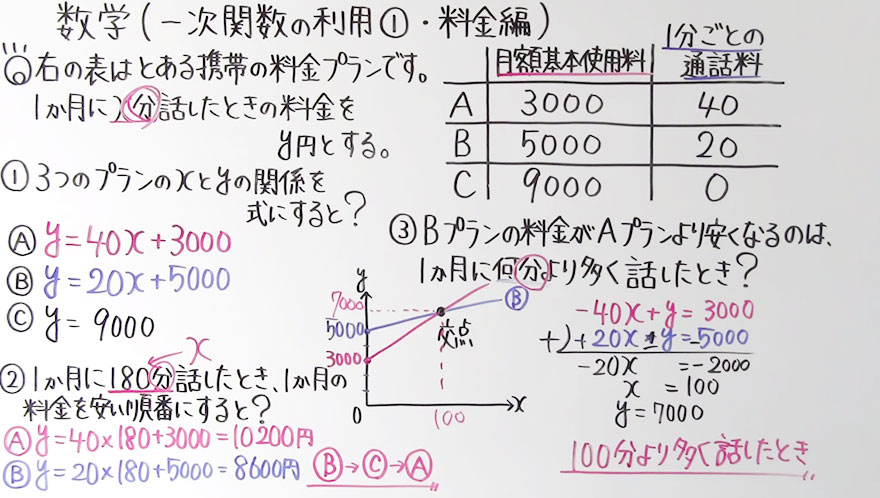 数学(一次関数の利用①・料金編)
◎右の表はとある携帯の料金プランです。
1か月にx分話したときの料金を
y円とする。
月額基本使用料 1分ごとの通話料
A 3000 40
B 5000 20
C 9000 0
①3つのプランのxとyの関係を
式にすると?
Ⓐ y=40x+3000
Ⓑ y=20x+5000
Ⓒ y=9000
x
②1か月に180分話したとき、1か月の
料金を安い順番にすると?
Ⓐ y=40×180+3000=10200円
Ⓑ y=20×180+5000=8600円
Ⓑ→Ⓒ→Ⓐ
③Bプランの料金がAプランより安くなるのは、
1か月に何分より多く話したとき?
y
7000
5000
3000
0
100
x
交点
Ⓑ
-40x+y=3000
+)+20x-y=-5000
-20x =-2000
x =100
y=7000
100分より多く話したとき